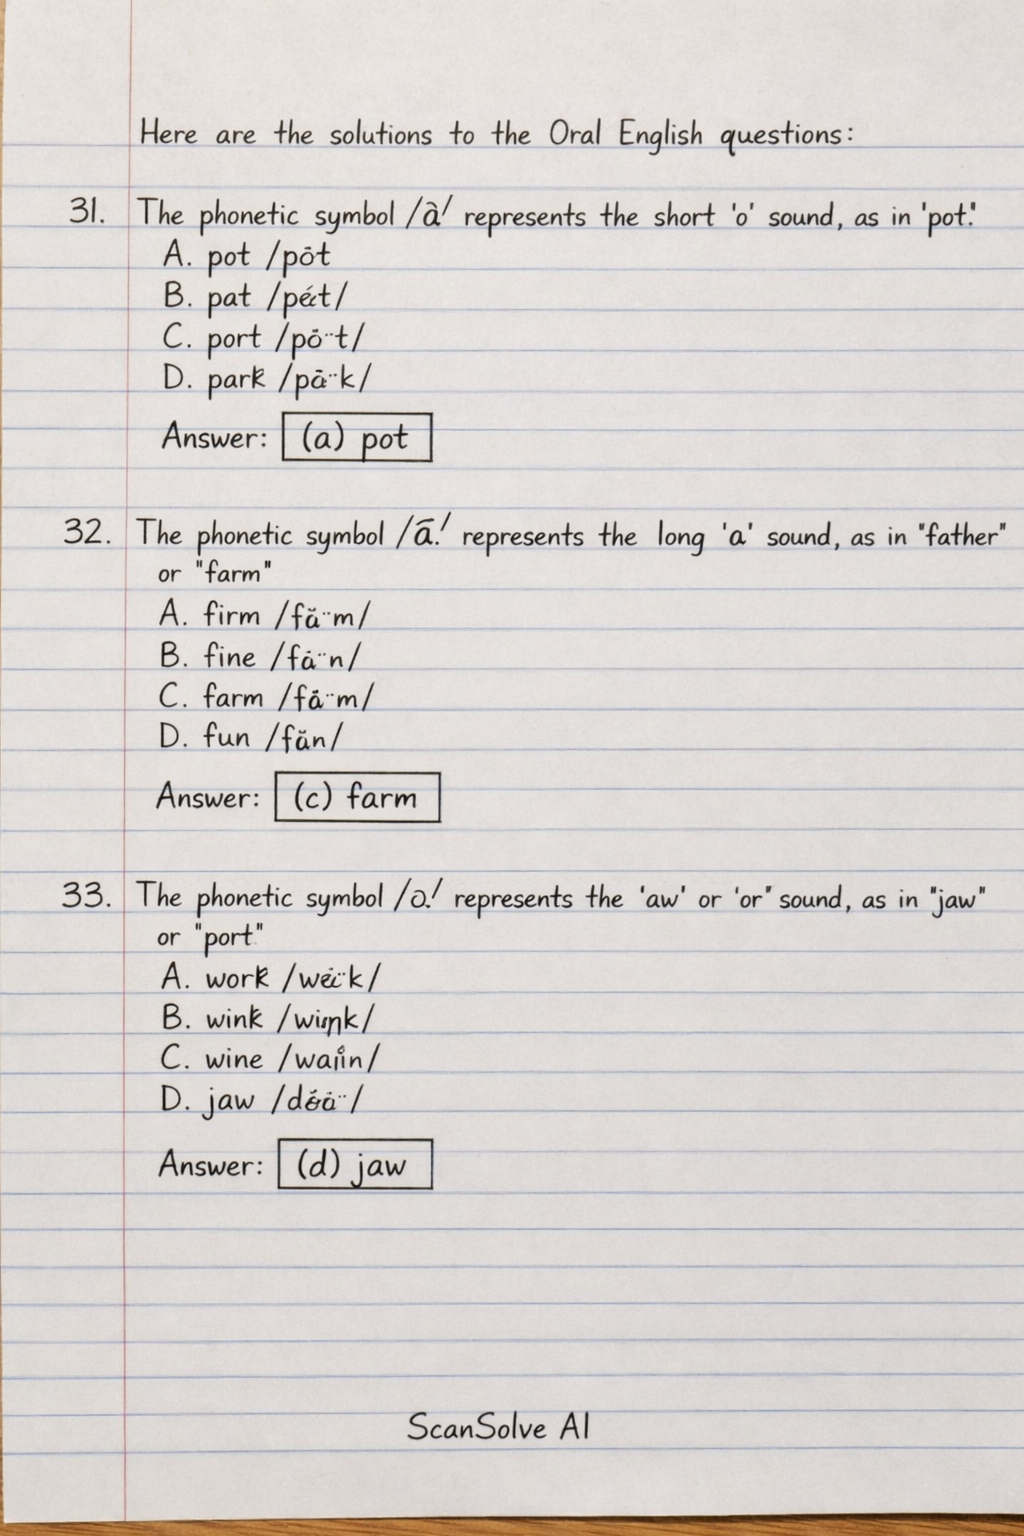 Here are the solutions to the Oral English questions:
31. The phonetic symbol /ȧ̀/ represents the short 'o' sound, as in 'pot.'
A. pot /pôt
B. pat
C. port /pö¨t/
D. park /pā¨k/
Answer: (a) pot
32. The phonetic symbol /ā./ represents the long 'a' sound, as in "father"
or "farm"
A. firm /fă¨m/
B. fine /fȧ¨n/
C. farm /fá¨m/
D. fun /făn/
Answer: (c) farm
33. The phonetic symbol /ə./ represents the 'aw' or 'or" sound, as in "jaw"
or "port"
A. work
B. wink
C. wine
D. jaw
Answer: (d) jaw
ScanSolve AI